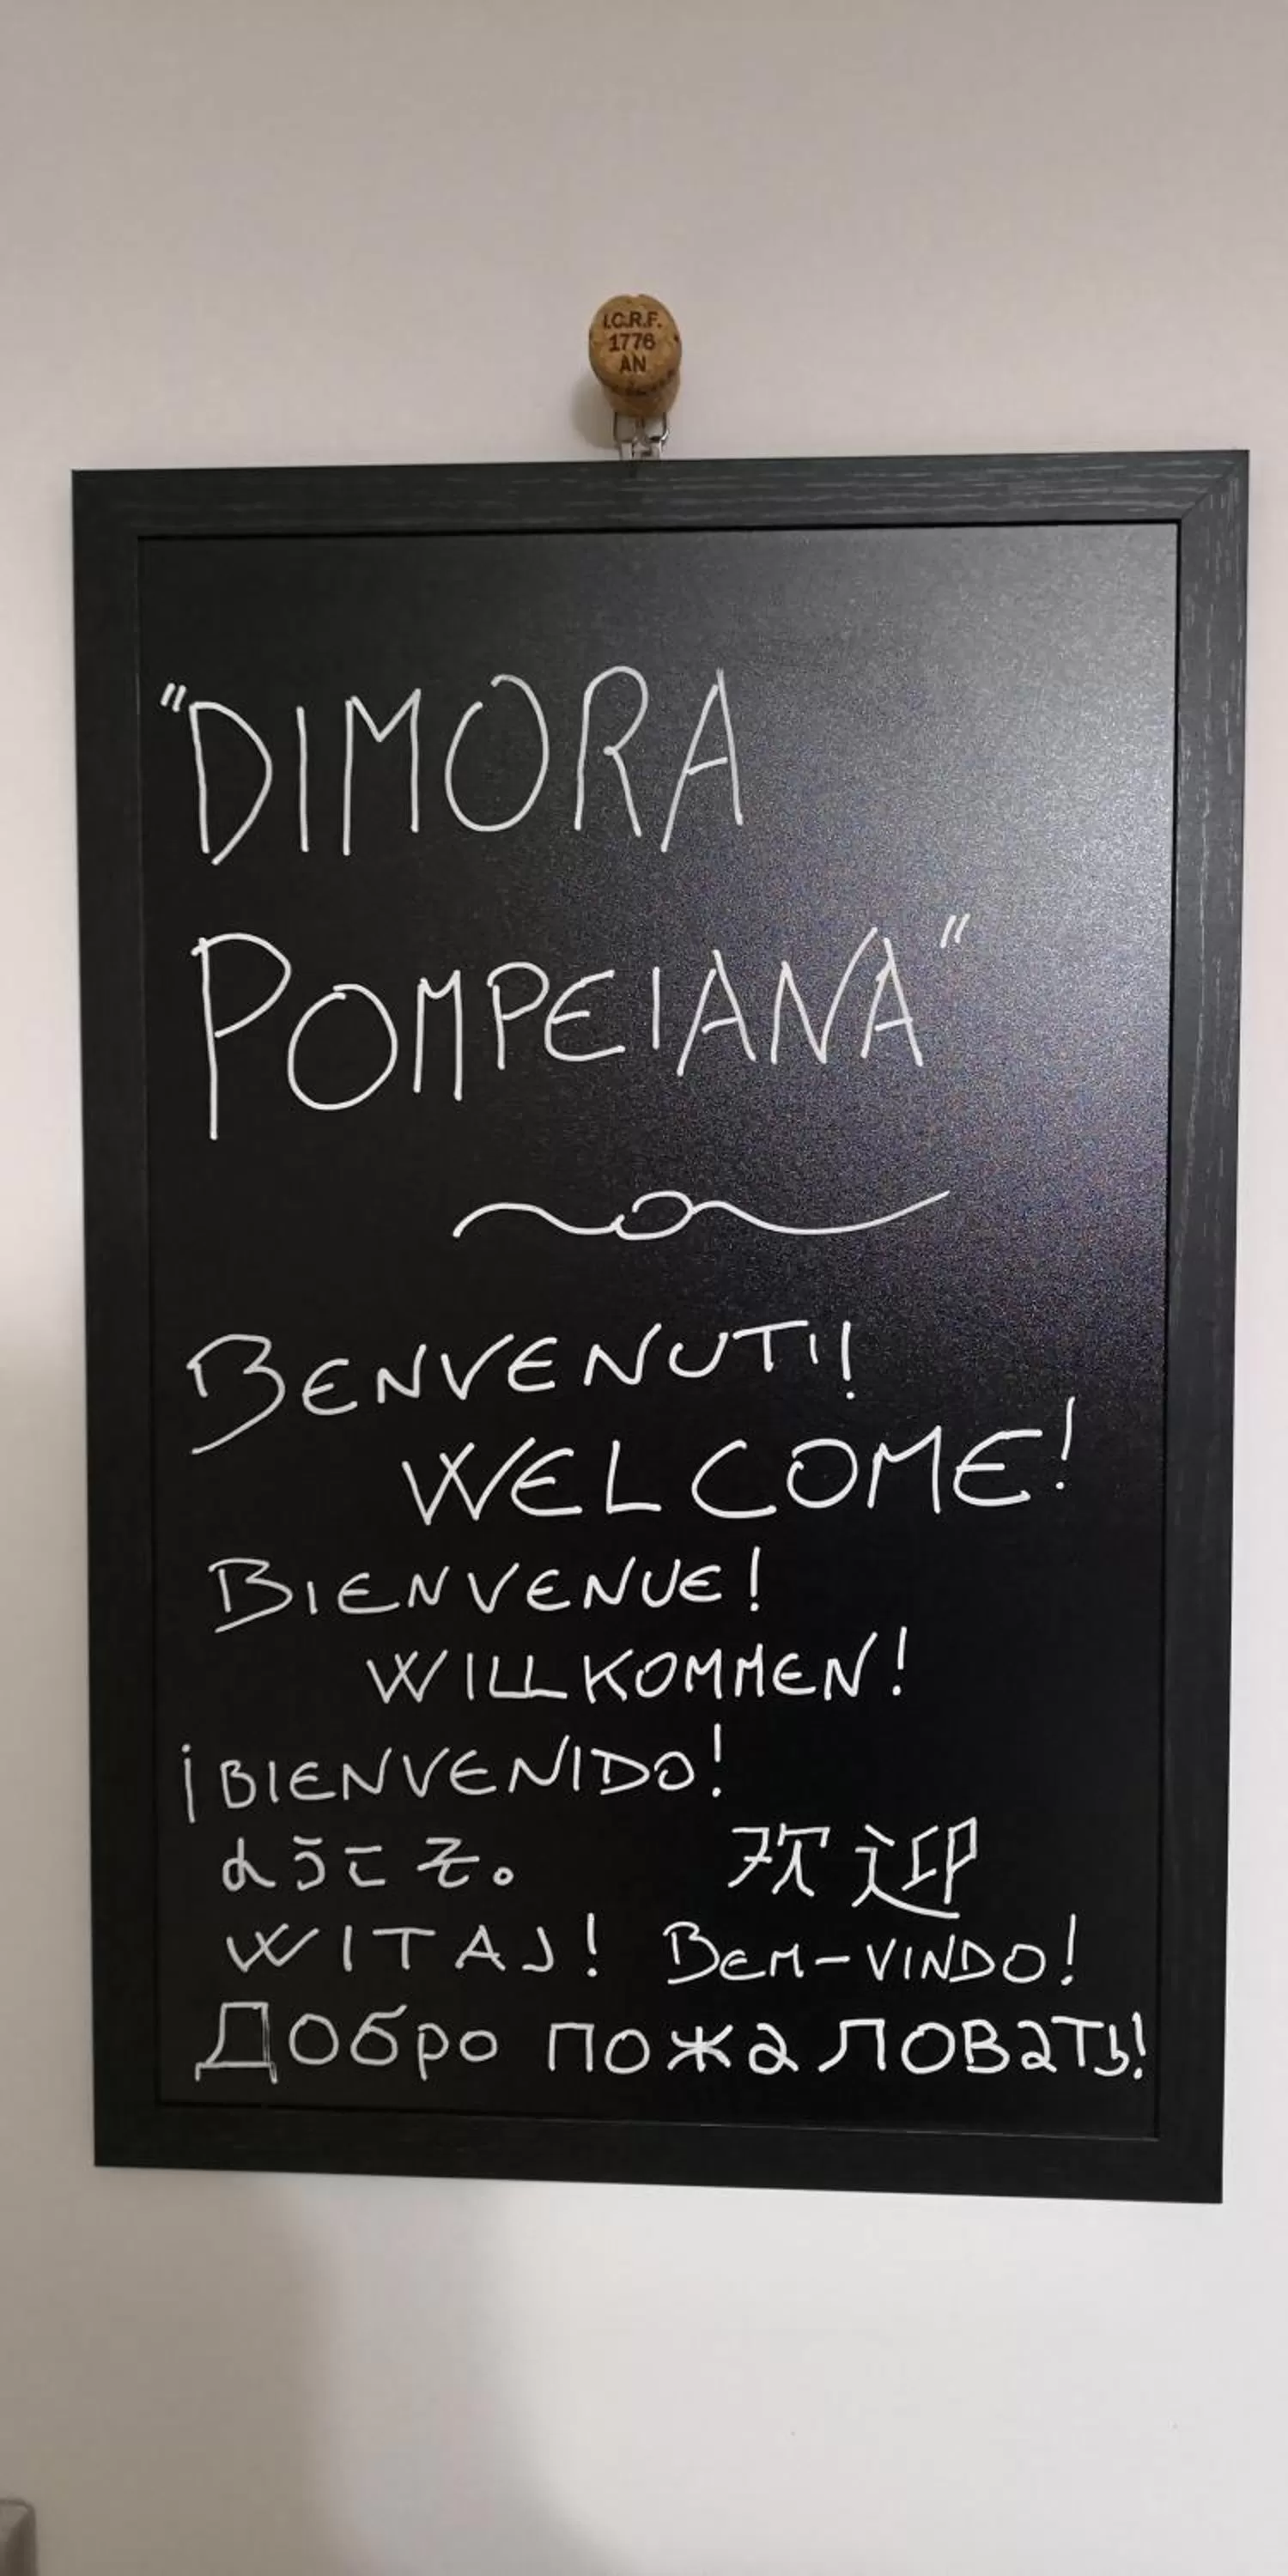 I.C.R.F.
1776
AN
"DIMORA
POMPEIANA"
BENVENUTI!
WELCOME!
BIENVENUE!
WILLKOMMEN!
¡BIENVENIDO!
ようこそ。 欢迎
WITAJ! BEM-VINDO!
Добро пожаловать!